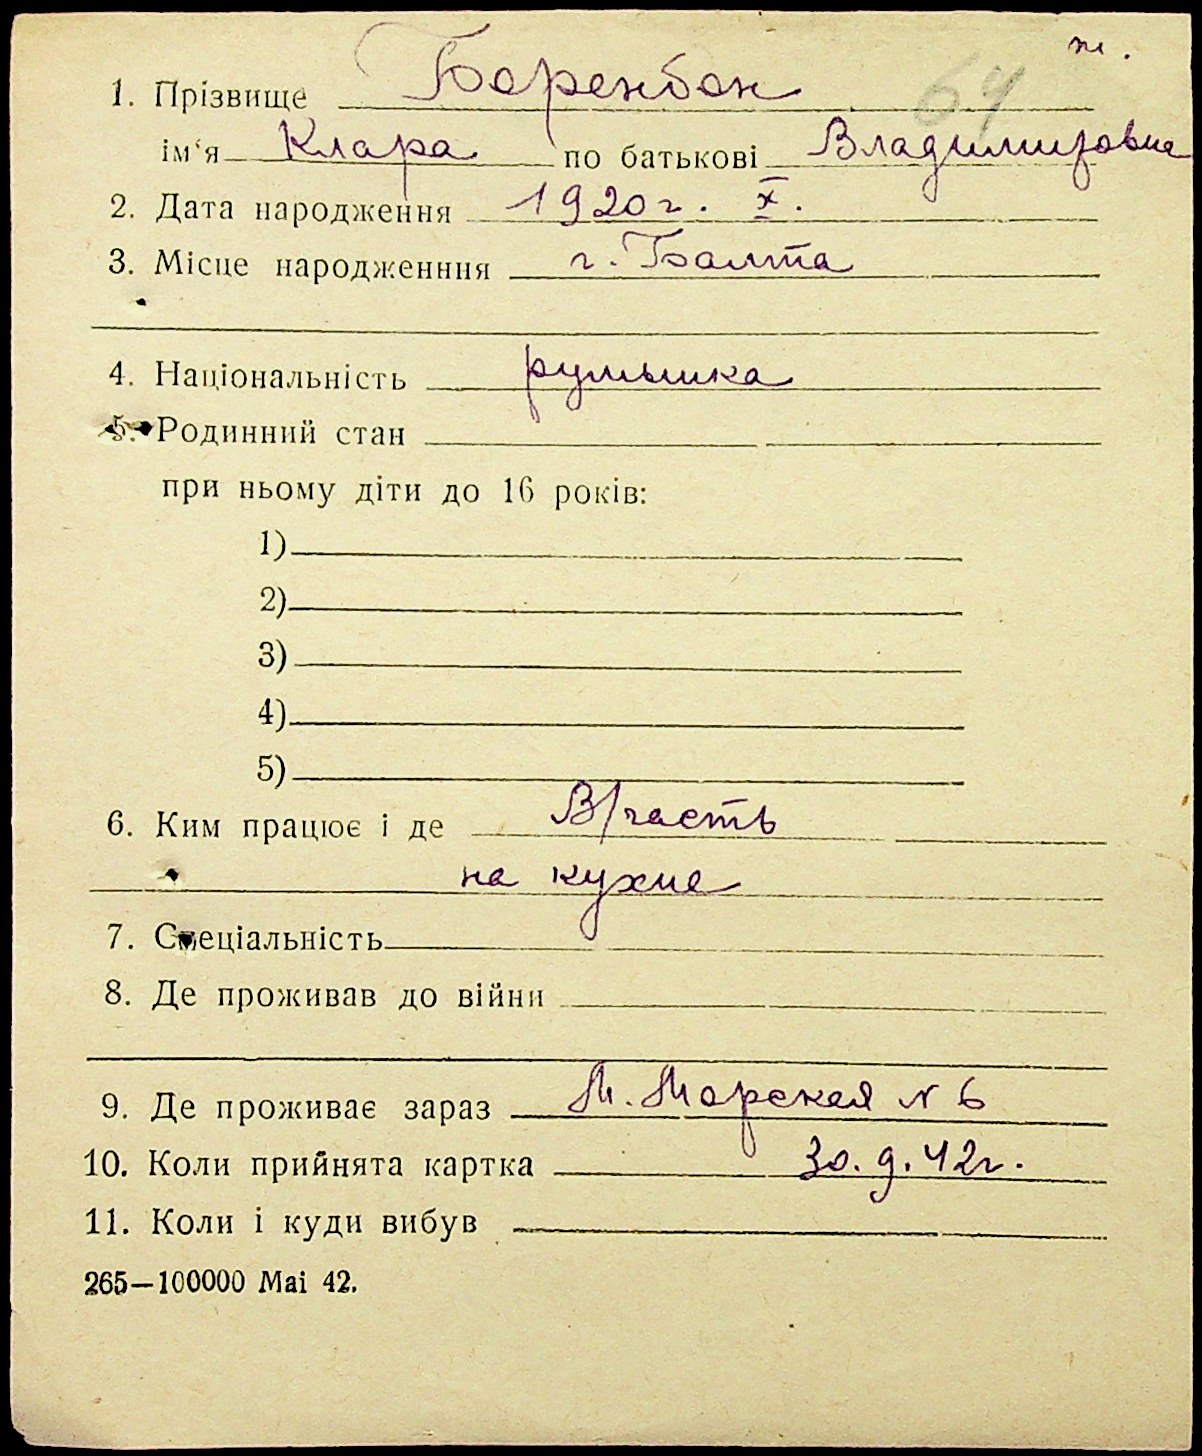 ж.
64
1. Прізвище Боренбон
ім‘я Клара по батькові Владимировна
2. Дата народження 1920 г. X.
3. Місце народженння г. Балта
4. Національність румынка
5. Родинний стан
при ньому діти до 16 років:
1)
2)
3)
4)
5)
6. Ким працює і де В/часть
на кухне
7. Спеціальність
8. Де проживав до війни
9. Де проживає зараз М. Морская N 6
10. Коли прийнята картка 30. 9. 42 г.
11. Коли і куди вибув
265—100000 Mai 42.